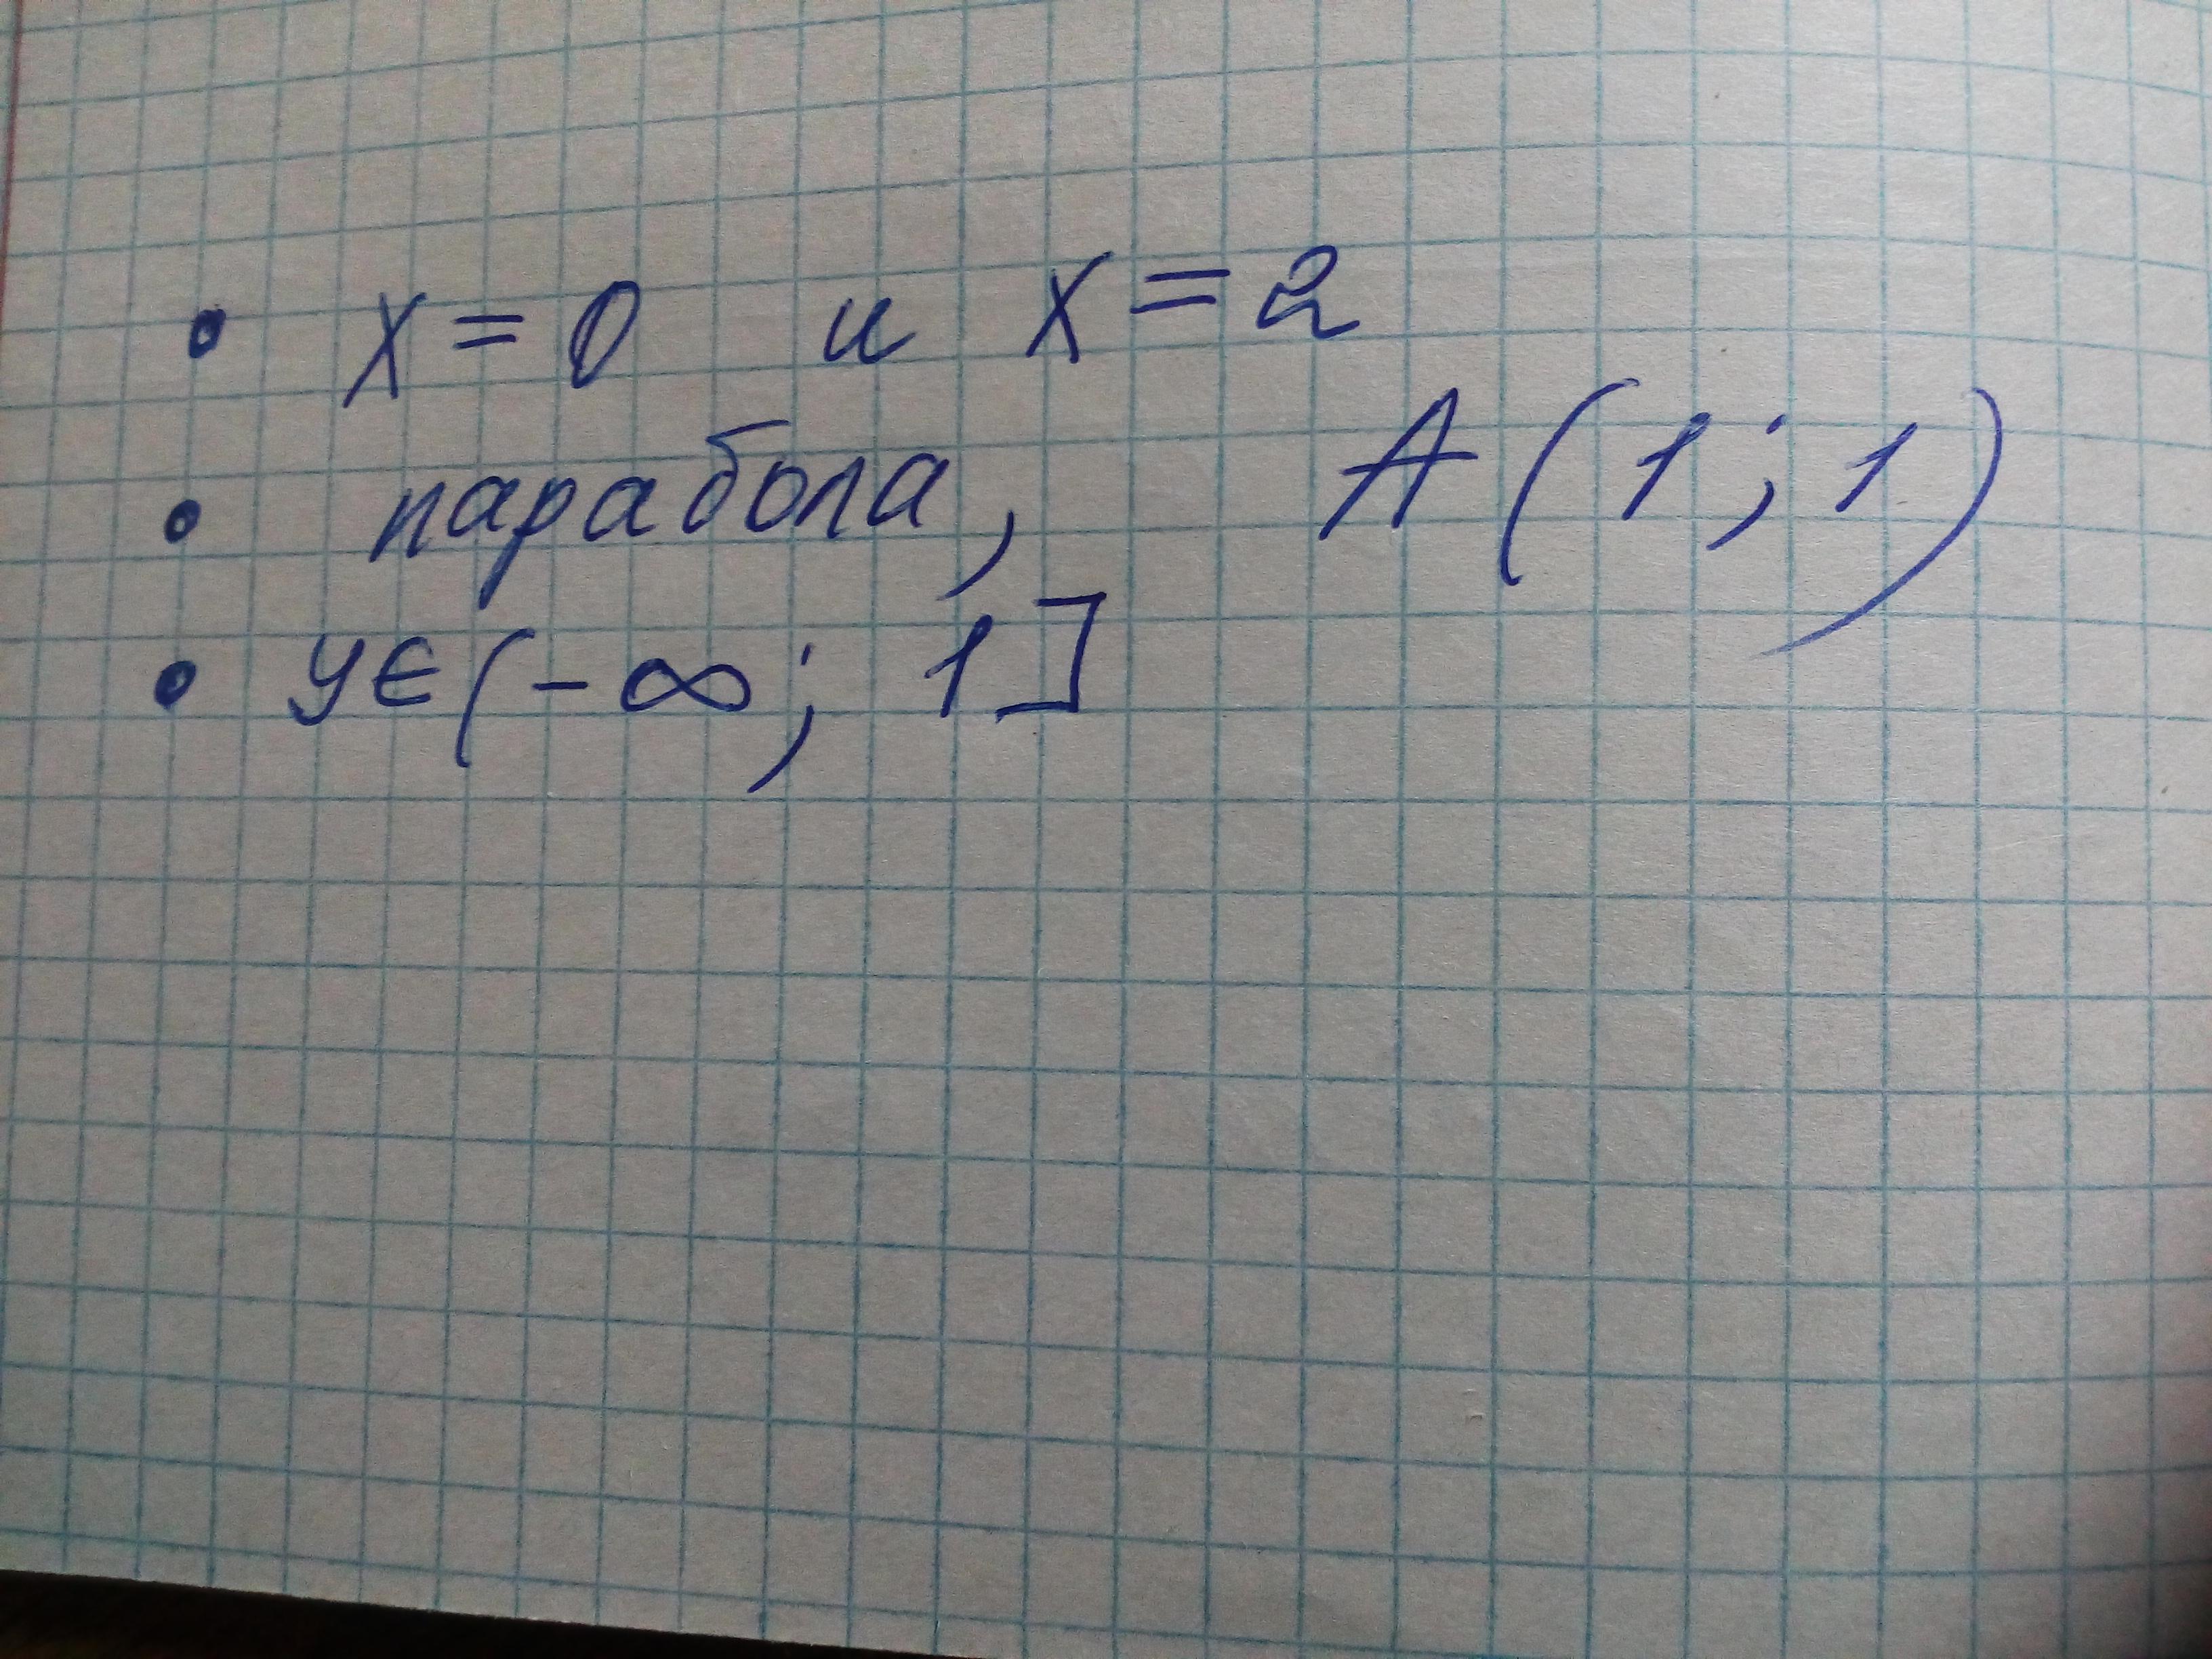 • x = 0 и x = 2
• парабола, A (1 ; 1)
• y ∈ (- ∞ ; 1]